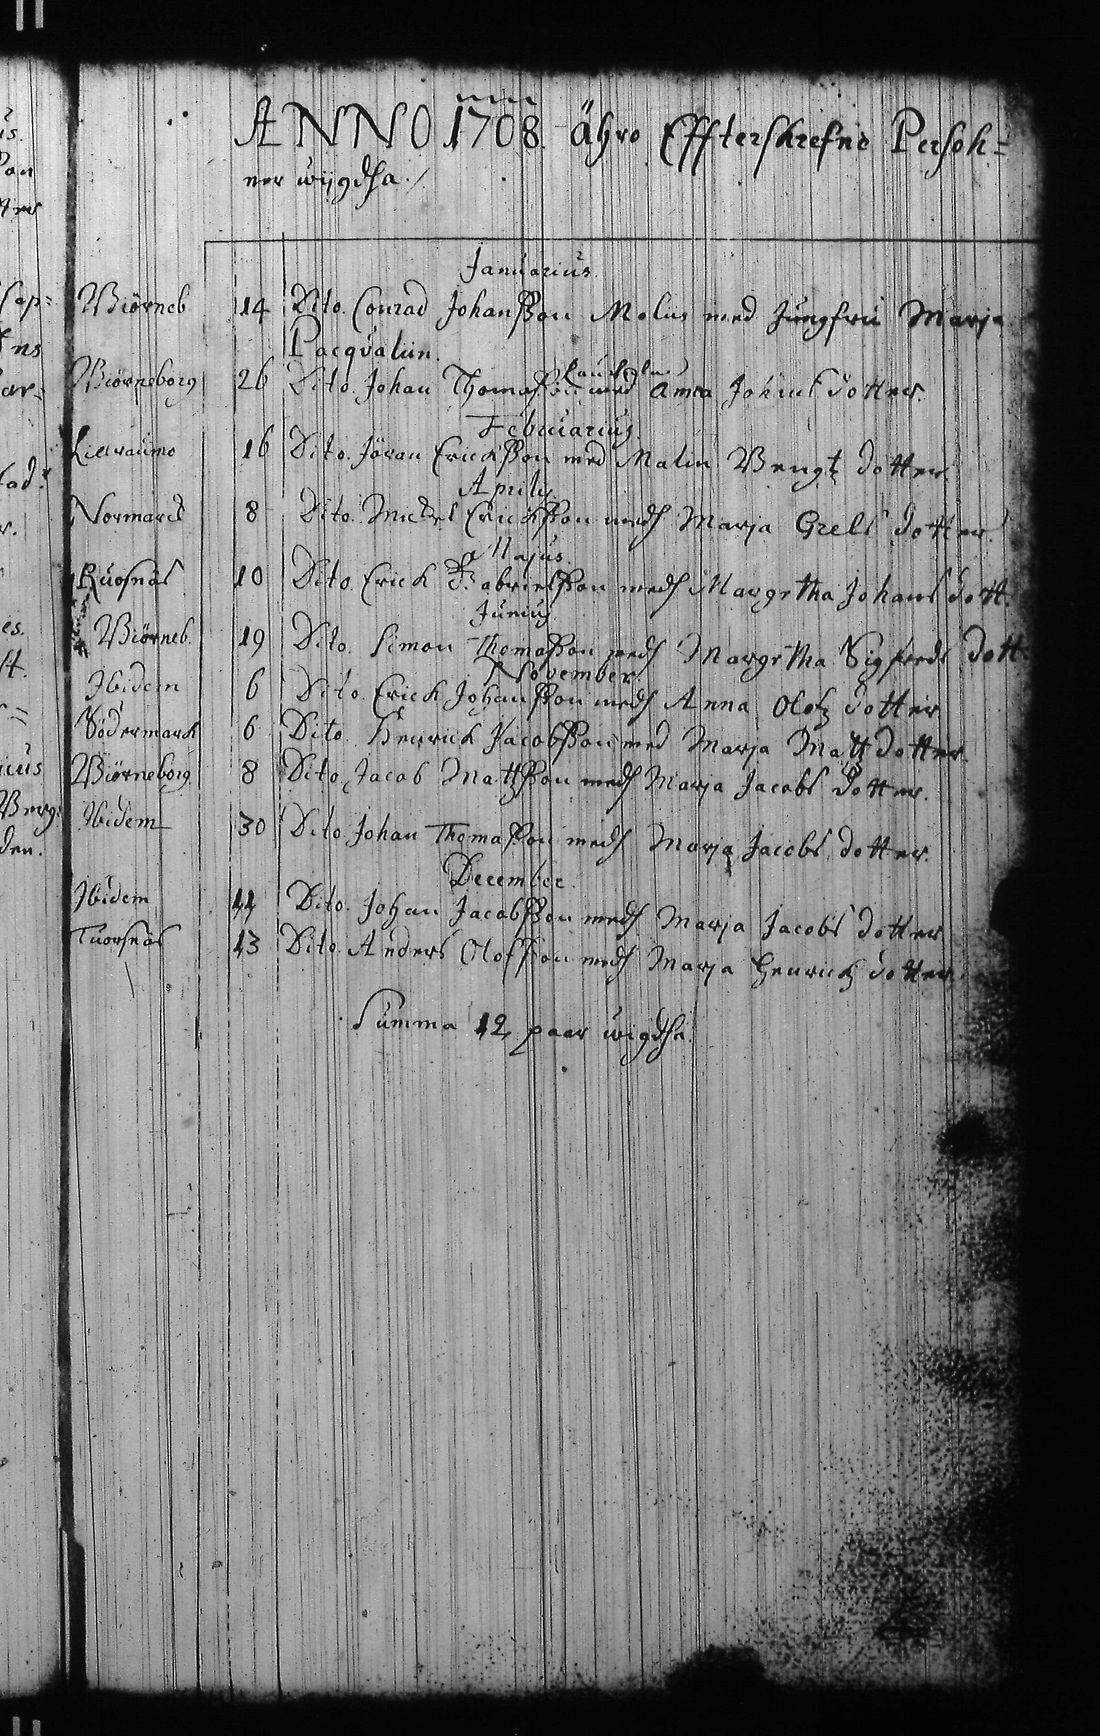 ANNO 1708 Ähro Effterskrefne Persoh=
ner wijgdha
Januarius.
Biörneb 14 Dito. Conrad Johansson Molin med Jungfru Marja
Pacqvalin.
Biörneborg 26 Dito. Johan Thomasson med Anna Johans dotter.
Februarius.
Lillraumo 16 Dito. Jöran Erichsson med Malin Bengtz dotter
Aprilis.
Normarck 8 Dito. Mickel Erichsson medh Marja Grels dotter.
Majus.
Ruosnäs 10 Dito. Erick Gabrielsson medh Margrtha Johans dott.
Junius.
Biörneb. 19 Dito. Simon Thomasson medh Margrtha Sigfreds dott.
November.
Ibidem 6 Dito. Erick Johansson medh Anna Olofz dotter
Södermarck 6 Dito. Henrich Jacobsson med Marja Matz dotter.
Biörneborg 8 Dito. Jacob Mattsson medh Marja Jacobs dotter.
Ibidem 30 Dito Johan Thomasson medh Marja Jacobs dotter.
December.
Ibidem 11 Dito. Johan Jacobsson medh Marja Jacobs dotter
Tuorsnäs 13 Dito. Anders Olofsson medh Marja Henrichz dotter.
Summa 12 paar wigdha.